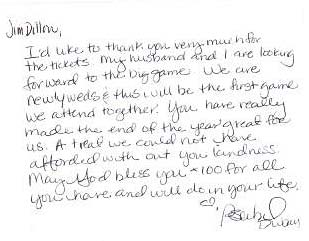 Jim Dillon,
I'd like to thank you very much for
the tickets. My husband and I are looking
forward to the big game. We are
newlyweds & this will be the first game
we attend together. You have really
made the end of the year great for
us. A treat we could not have
afforded with out you kindness.
May God bless you x 100 for all
you have and will do in your life.